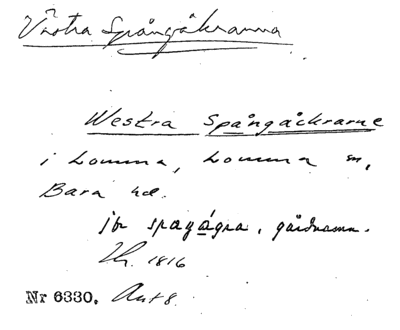 Västra Spångåkrarna
Westra Spångåckrarne
i Lomma, Lomma sn,
Bara hd.
jfr spaŋågra, gårdnamn.
Lh. 1816
Nr 6330. Akt 8.